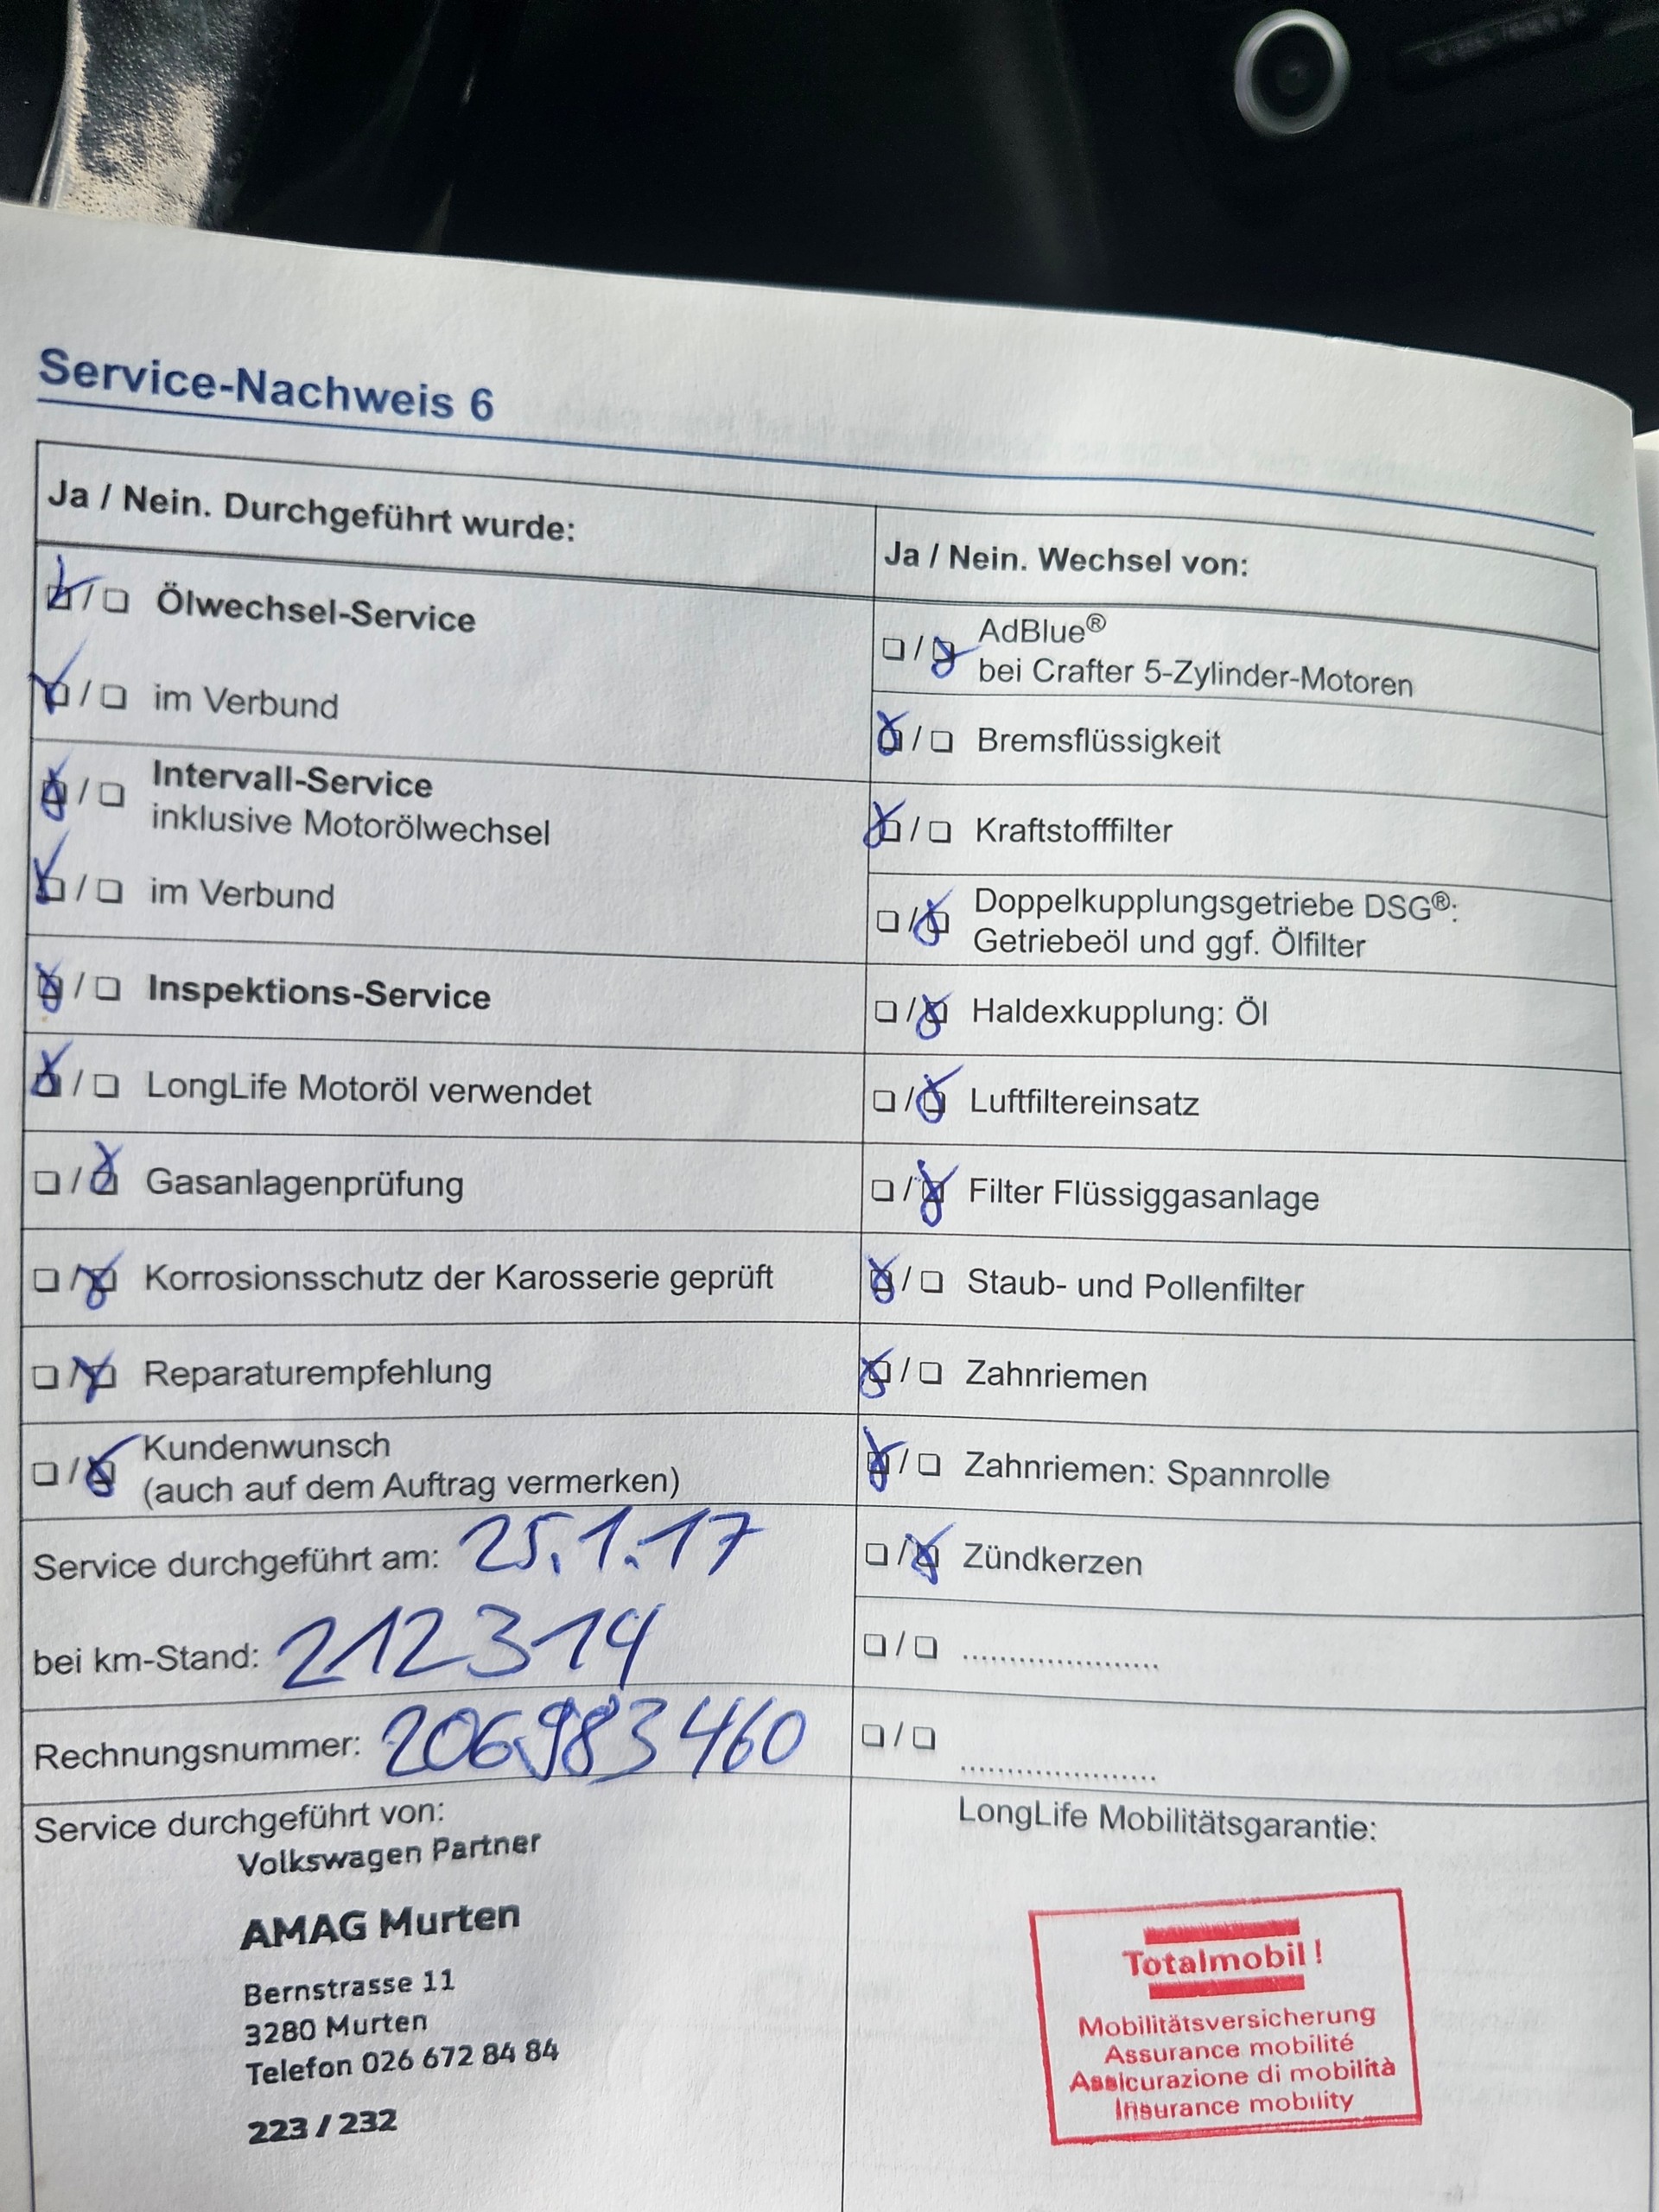 Service-Nachweis 6
Ja / Nein. Durchgeführt wurde:
☑ / ☐ Ölwechsel-Service
☑ / ☐ im Verbund
☑ / ☐ Intervall-Service
inklusive Motorölwechsel
☑ / ☐ im Verbund
☑ / ☐ Inspektions-Service
☑ / ☐ LongLife Motoröl verwendet
☐ / ☑ Gasanlagenprüfung
☐ / ☑ Korrosionsschutz der Karosserie geprüft
☐ / ☑ Reparaturempfehlung
☐ / ☑ Kundenwunsch
(auch auf dem Auftrag vermerken)
Service durchgeführt am: 25.1.17
bei km-Stand: 212314
Rechnungsnummer: 206983460
Service durchgeführt von:
Volkswagen Partner
AMAG Murten
Bernstrasse 11
3280 Murten
Telefon 026 672 84 84
223 / 232
Ja / Nein. Wechsel von:
☐ / ☑ AdBlue®
bei Crafter 5-Zylinder-Motoren
☑ / ☐ Bremsflüssigkeit
☑ / ☐ Kraftstofffilter
☐ / ☑ Doppelkupplungsgetriebe DSG®:
Getriebeöl und ggf. Ölfilter
☐ / ☑ Haldexkupplung: Öl
☐ / ☑ Luftfiltereinsatz
☐ / ☑ Filter Flüssiggasanlage
☑ / ☐ Staub- und Pollenfilter
☑ / ☐ Zahnriemen
☑ / ☐ Zahnriemen: Spannrolle
☐ / ☑ Zündkerzen
☐ / ☐ ......................
☐ / ☐ ......................
LongLife Mobilitätsgarantie:
Totalmobil!
Mobilitätsversicherung
Assurance mobilité
Assicurazione di mobilità
Insurance mobility